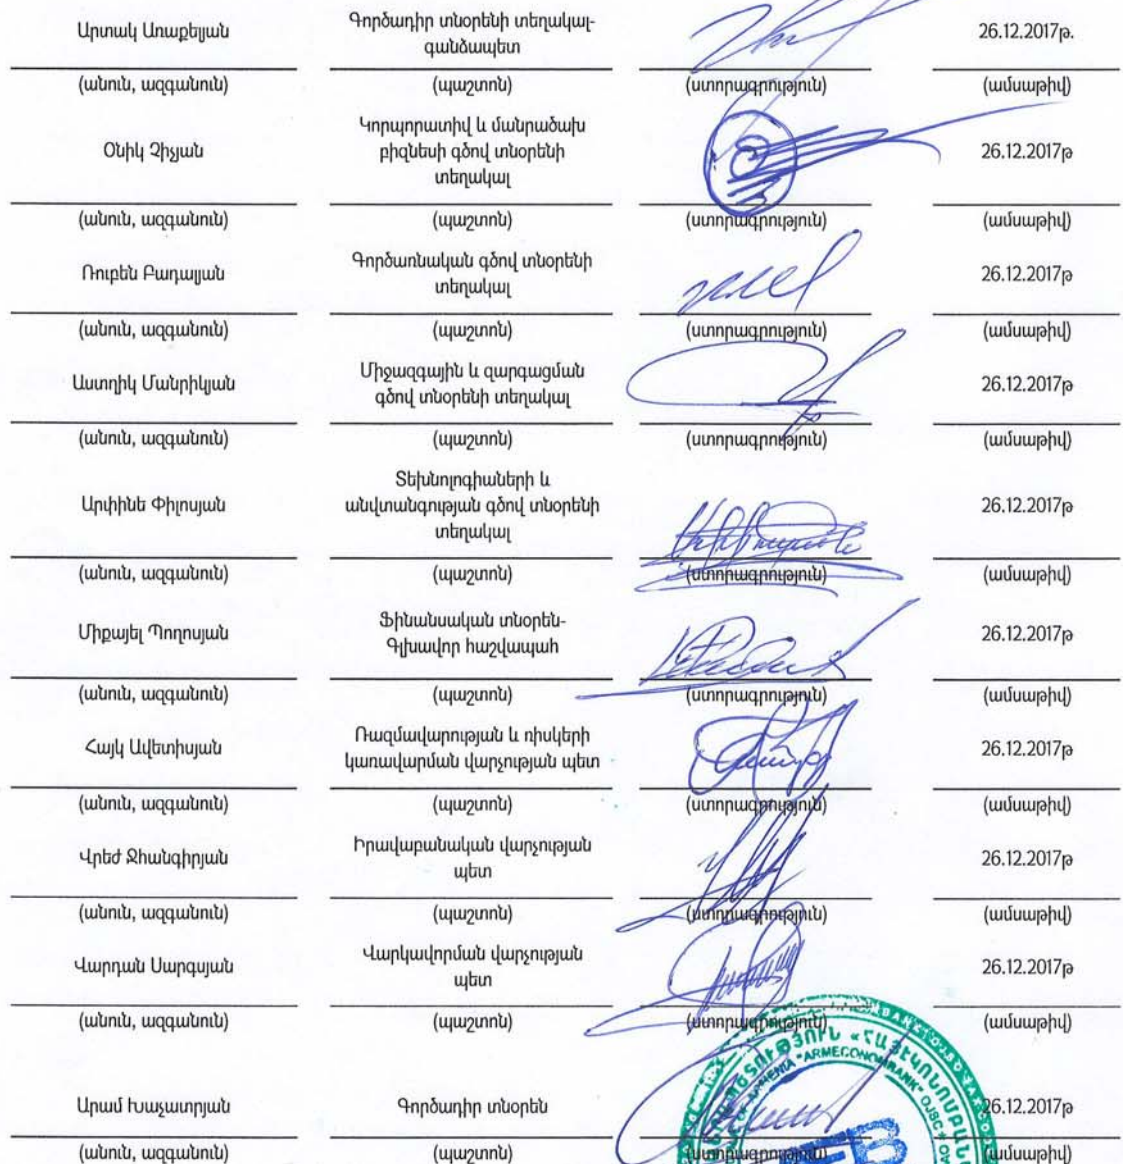 Արտակ Առաքելյան
Գործադիր տնօրենի տեղակալ-
գանձապետ
26.12.2017թ.
(անուն, ազգանուն) (պաշտոն) (ստորագրություն) (ամսաթիվ)
Օնիկ Չիչյան
Կորպորատիվ և մանրածախ
բիզնեսի գծով տնօրենի
տեղակալ
26.12.2017թ
(անուն, ազգանուն) (պաշտոն) (ստորագրություն) (ամսաթիվ)
Ռուբեն Բադալյան
Գործառնական գծով տնօրենի
տեղակալ
26.12.2017թ
(անուն, ազգանուն) (պաշտոն) (ստորագրություն) (ամսաթիվ)
Աստղիկ Մանրիկյան
Միջազգային և զարգացման
գծով տնօրենի տեղակալ
26.12.2017թ
(անուն, ազգանուն) (պաշտոն) (ստորագրություն) (ամսաթիվ)
Արփինե Փիլոսյան
Տեխնոլոգիաների և
անվտանգության գծով տնօրենի
տեղակալ
26.12.2017թ
(անուն, ազգանուն) (պաշտոն) (ստորագրություն) (ամսաթիվ)
Միքայել Պողոսյան
Ֆինանսական տնօրեն-
Գլխավոր հաշվապահ
26.12.2017թ
(անուն, ազգանուն) (պաշտոն) (ստորագրություն) (ամսաթիվ)
Հայկ Ավետիսյան
Ռազմավարության և ռիսկերի
կառավարման վարչության պետ
26.12.2017թ
(անուն, ազգանուն) (պաշտոն) (ստորագրություն) (ամսաթիվ)
Վրեժ Ջհանգիրյան
Իրավաբանական վարչության
պետ
26.12.2017թ
(անուն, ազգանուն) (պաշտոն) (ստորագրություն) (ամսաթիվ)
Վարդան Սարգսյան
Վարկավորման վարչության
պետ
26.12.2017թ
(անուն, ազգանուն) (պաշտոն) (ստորագրություն) (ամսաթիվ)
Արամ Խաչատրյան
Գործադիր տնօրեն
26.12.2017թ
(անուն, ազգանուն) (պաշտոն) (ստորագրություն) (ամսաթիվ)
"ARMECONOMBANK" OJSC